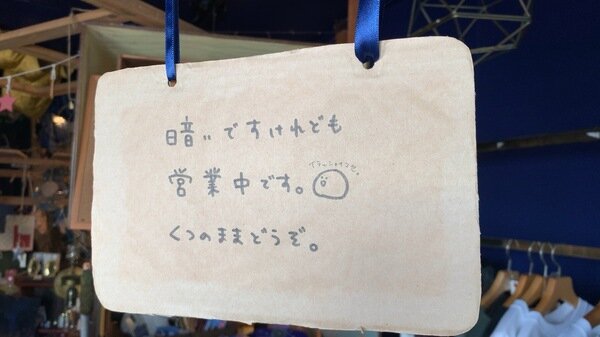 暗いですけれども
営業中です。
イラッシャイマセ。
くつのままどうぞ。